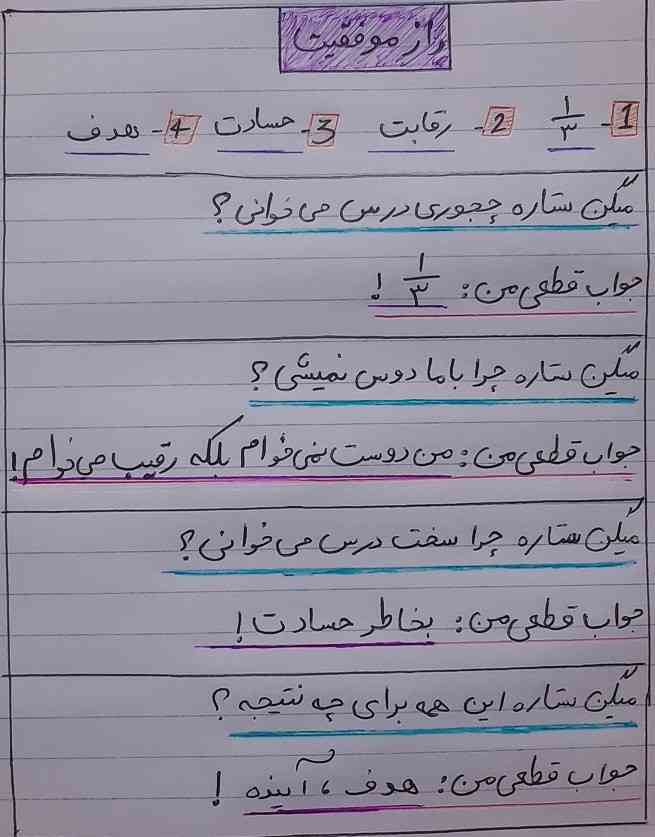 راز موفقیت
1- ۱/۳ 2- رقابت 3- حسادت 4- هدف
میگن ستاره چجوری درس می خوانی؟
جواب قطعی من: ۱/۳ !
میگن ستاره چرا با ما دوس نمیشی؟
جواب قطعی من: من دوست نمی خوام بلکه رقیب می خوام!
میگن ستاره چرا سخت درس می خوانی؟
جواب قطعی من: بخاطر حسادت!
میگن ستاره این همه برای چه نتیجه؟
جواب قطعی من: هدف، آینده !